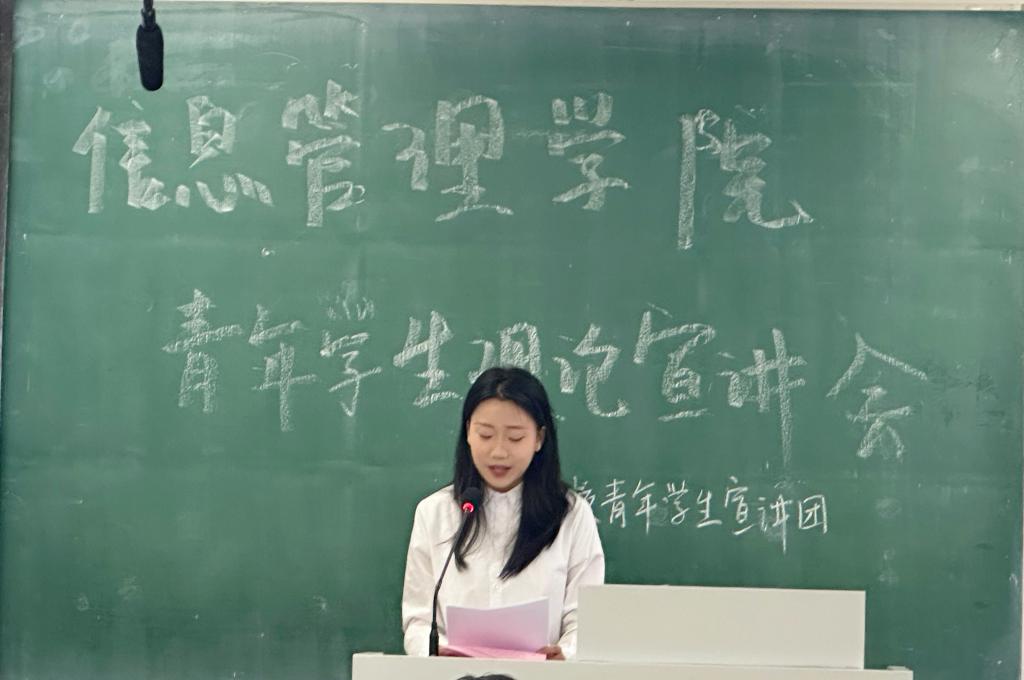 信息管理学院
青年学生理论宣讲会
青年学生宣讲团